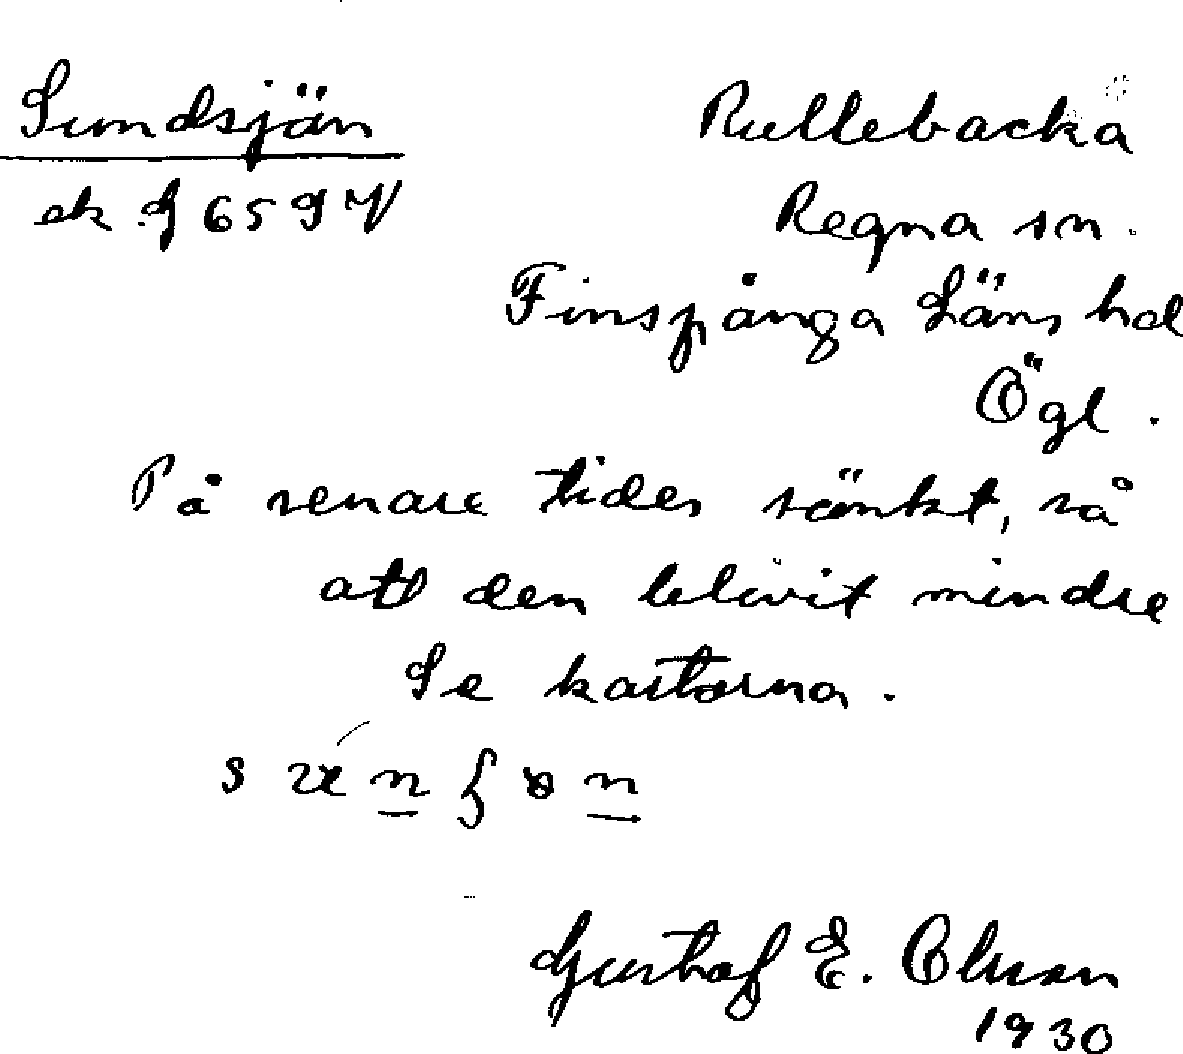 Sundsjön
Rullebacka
ek. bl 65 9 V
Regna sn.
Finspånga Läns hd
Ögl.
På senare tider sänkt, så
att den blivit mindre
Se kartorna.
Gustaf E. Olsson
1930